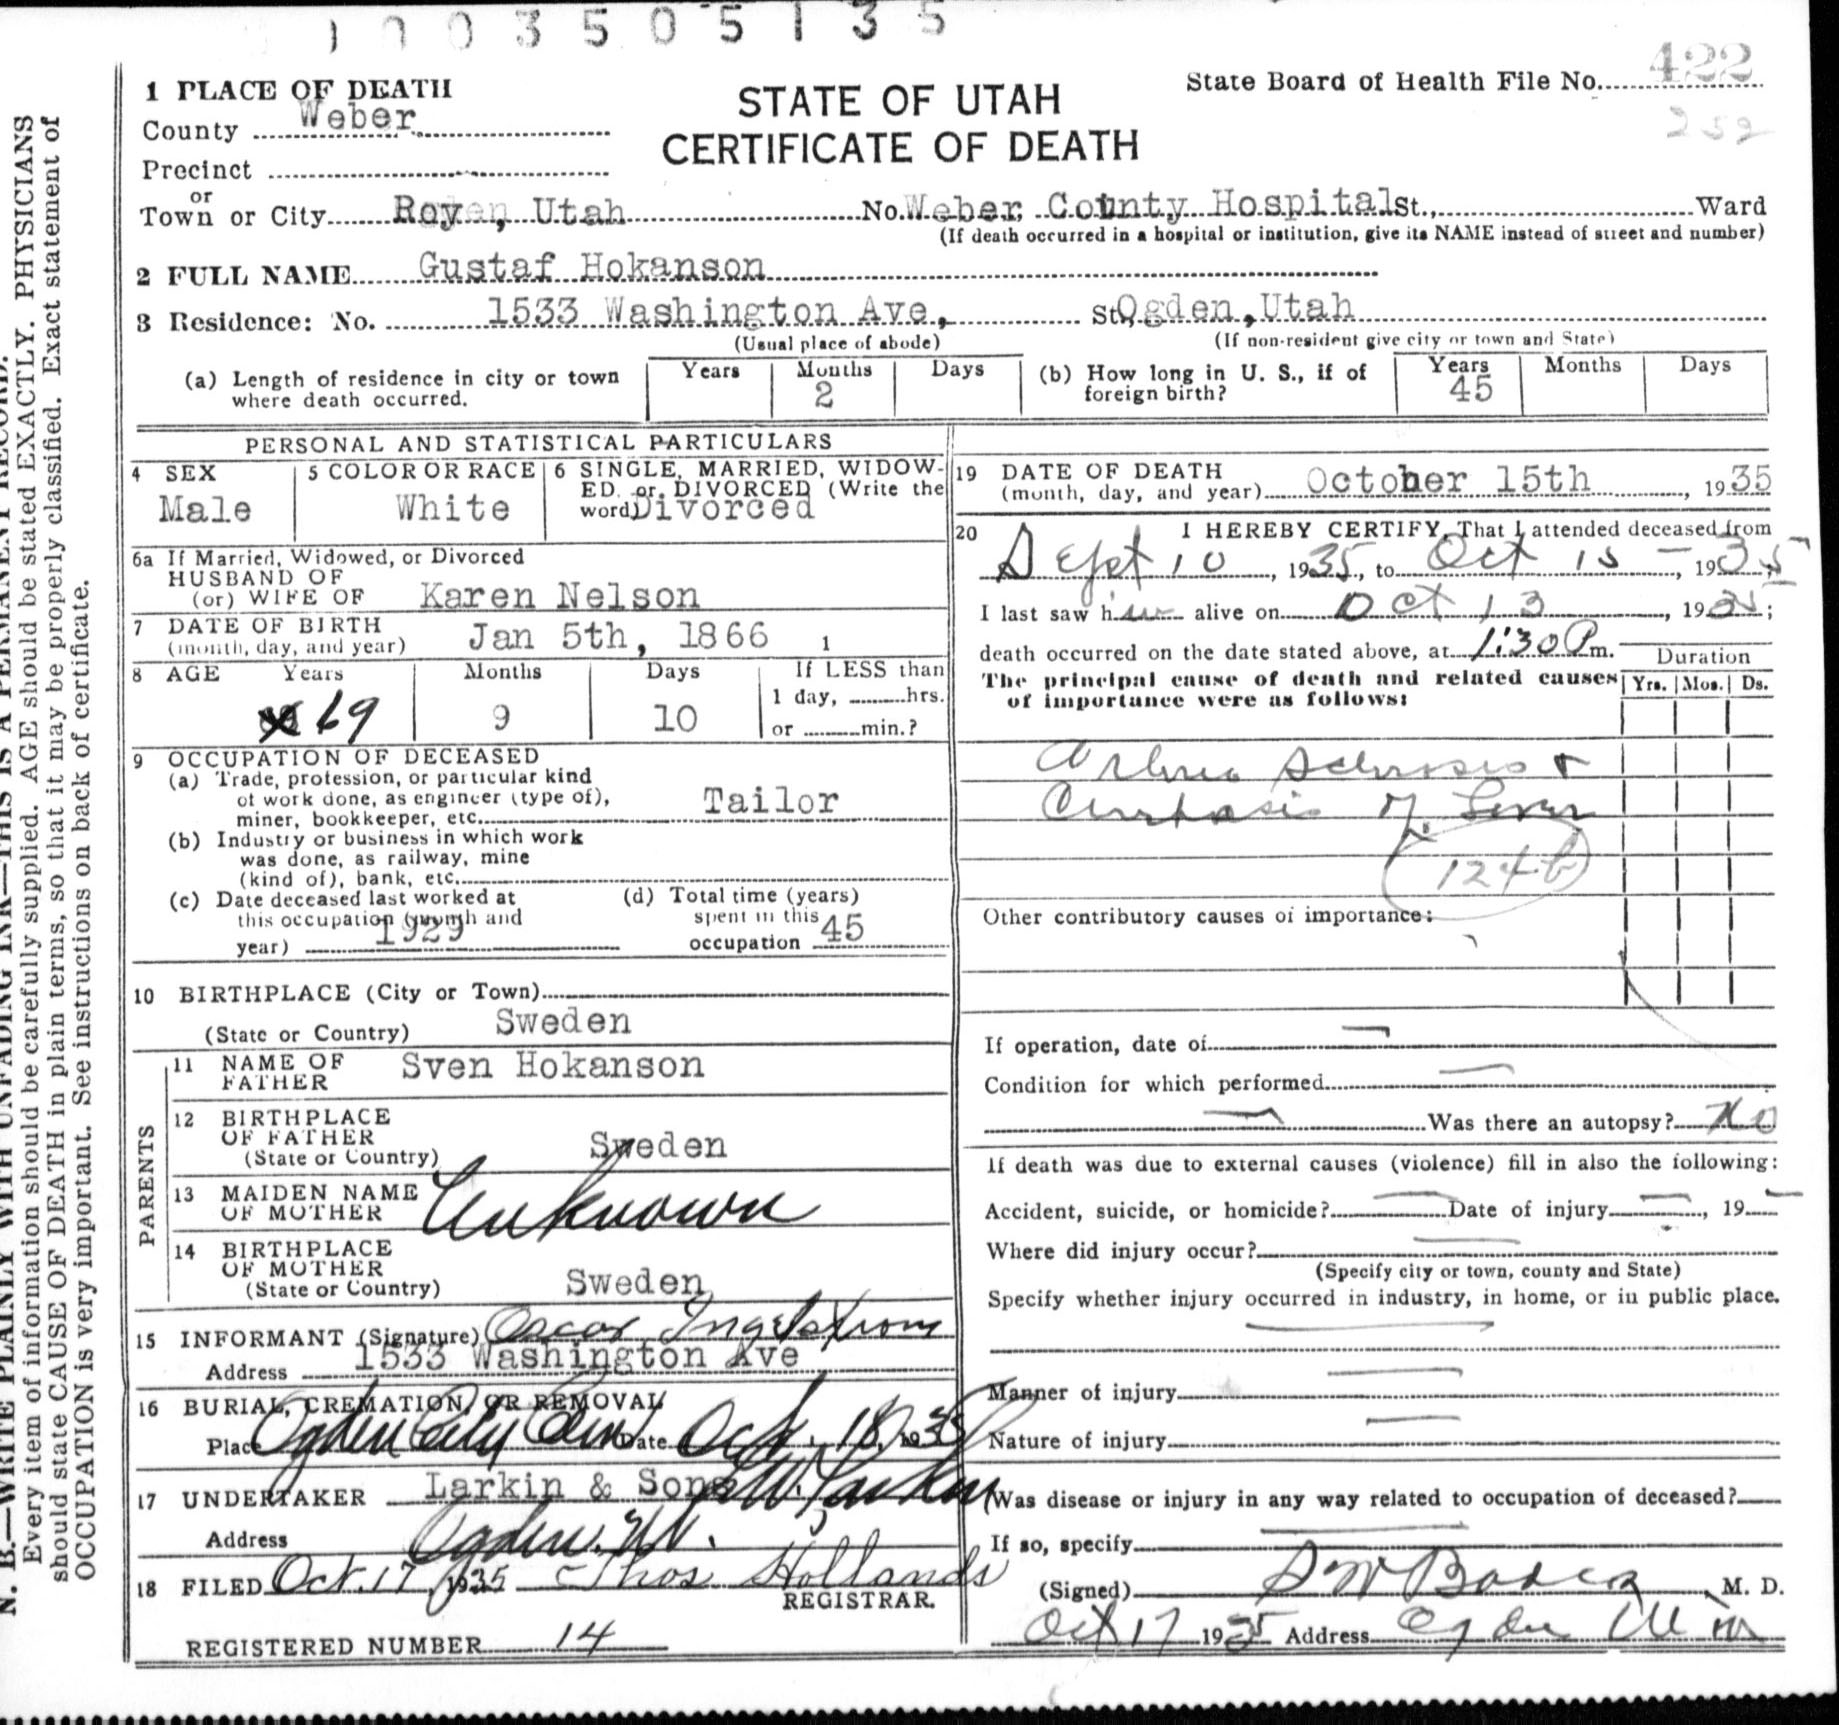 1003505135
1 PLACE OF DEATH
STATE OF UTAH
CERTIFICATE OF DEATH
State Board of Health File No. 422
252
County Weber
Precinct
or
Town or City Roy, Utah No. Weber County Hospital St., Ward
(If death occurred in a hospital or institution, give its NAME instead of street and number)
2 FULL NAME Gustaf Hokanson
3 Residence: No. 1533 Washington Ave, St. Ogden, Utah
(Usual place of abode) (If non-resident give city or town and State)
(a) Length of residence in city or town where death occurred. Years Months 2 Days
(b) How long in U. S., if of foreign birth? Years 45 Months Days
PERSONAL AND STATISTICAL PARTICULARS
4 SEX
Male
5 COLOR OR RACE
White
6 SINGLE, MARRIED, WIDOW-
ED, or DIVORCED (Write the
word) Divorced
6a If Married, Widowed, or Divorced
HUSBAND OF
(or) WIFE OF Karen Nelson
7 DATE OF BIRTH
(month, day, and year) Jan 5th, 1866 1
8 AGE Years Months Days If LESS than
1 day, hrs.
69 9 10 or min.?
9 OCCUPATION OF DECEASED
(a) Trade, profession, or particular kind
of work done, as engineer (type of),
miner, bookkeeper, etc. Tailor
(b) Industry or business in which work
was done, as railway, mine
(kind of), bank, etc.
(c) Date deceased last worked at
this occupation (month and
year) 1929
(d) Total time (years)
spent in this
occupation 45
10 BIRTHPLACE (City or Town)
(State or Country) Sweden
PARENTS
11 NAME OF
FATHER Sven Hokanson
12 BIRTHPLACE
OF FATHER
(State or Country) Sweden
13 MAIDEN NAME
OF MOTHER Unknown
14 BIRTHPLACE
OF MOTHER
(State or Country) Sweden
15 INFORMANT (Signature) Oscar Ingelstrom
Address 1533 Washington Ave
16 BURIAL, CREMATION, OR REMOVAL
Place Ogden City Cem Date Oct. 18, 1935
17 UNDERTAKER Larkin & Sons
Address Ogden, Ut.
18 FILED Oct. 17 1935 Thos Hollands
REGISTRAR.
REGISTERED NUMBER 14
19 DATE OF DEATH
(month, day, and year) October 15th, 1935
20 I HEREBY CERTIFY, That I attended deceased from
Sept 10, 1935, to Oct 15, 1935
I last saw him alive on Oct 13, 1935;
death occurred on the date stated above, at 1:30 P m.
Duration
The principal cause of death and related causes
of importance were as follows:
Yrs. Mos. Ds.
Sclerosis +
of Liver
124 b
Other contributory causes of importance:
If operation, date of
Condition for which performed
Was there an autopsy? No
If death was due to external causes (violence) fill in also the following:
Accident, suicide, or homicide? Date of injury , 19
Where did injury occur?
(Specify city or town, county and State)
Specify whether injury occurred in industry, in home, or in public place.
Manner of injury
Nature of injury
Was disease or injury in any way related to occupation of deceased?
If so, specify
(Signed) M. D.
Oct 17 1935 Address Ogden
N. B.—WRITE PLAINLY WITH UNFADING INK—THIS IS A PERMANENT RECORD.
Every item of information should be carefully supplied. AGE should be stated EXACTLY. PHYSICIANS
should state CAUSE OF DEATH in plain terms, so that it may be properly classified. Exact statement of
OCCUPATION is very important. See instructions on back of certificate.